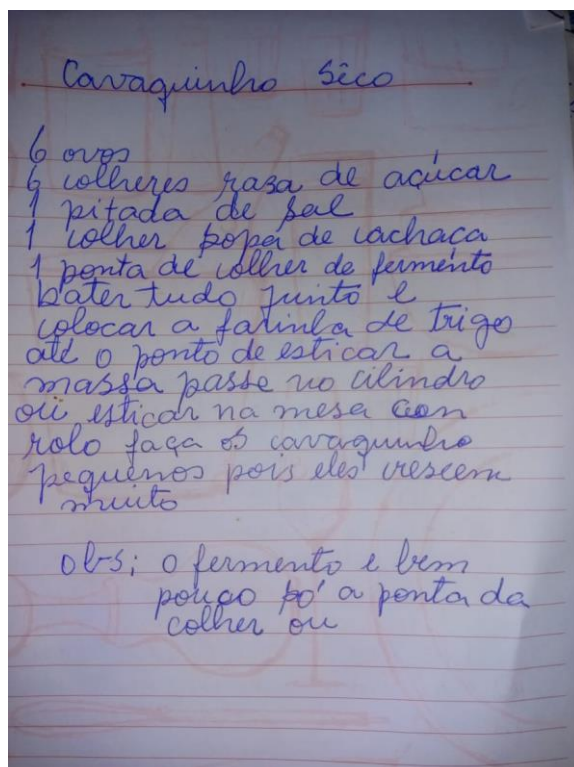 Cavaquinho Sêco
6 ovos
6 colheres rasa de açúcar
1 pitada de sal
1 colher sopa de cachaca
1 ponta de colher de fermento
bater tudo junto e
colocar a farinha de trigo
até o ponto de esticar a
massa passe no cilindro
ou esticar na mesa con
rolo faça os cavaquinho
pequenos pois eles crescem
muito
obs; o fermento e bem
pouco só a ponta da
colher ou